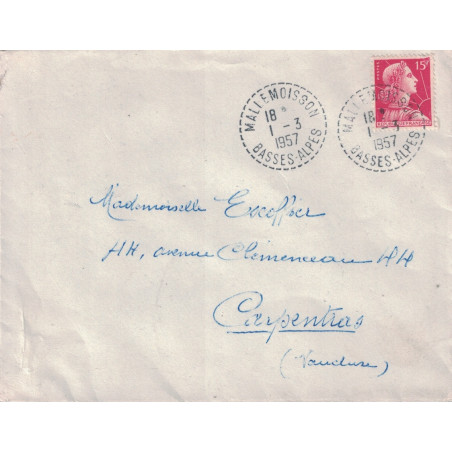 15F
MALLEMOISSON
18 *
1 - 3
1957
BASSES-ALPES
MALLEMOISSON
18 *
1 - 3
1957
BASSES-ALPES
Mademoiselle Excoffier
44, avenue Clémenceau 44
Carpentras
(Vaucluse)